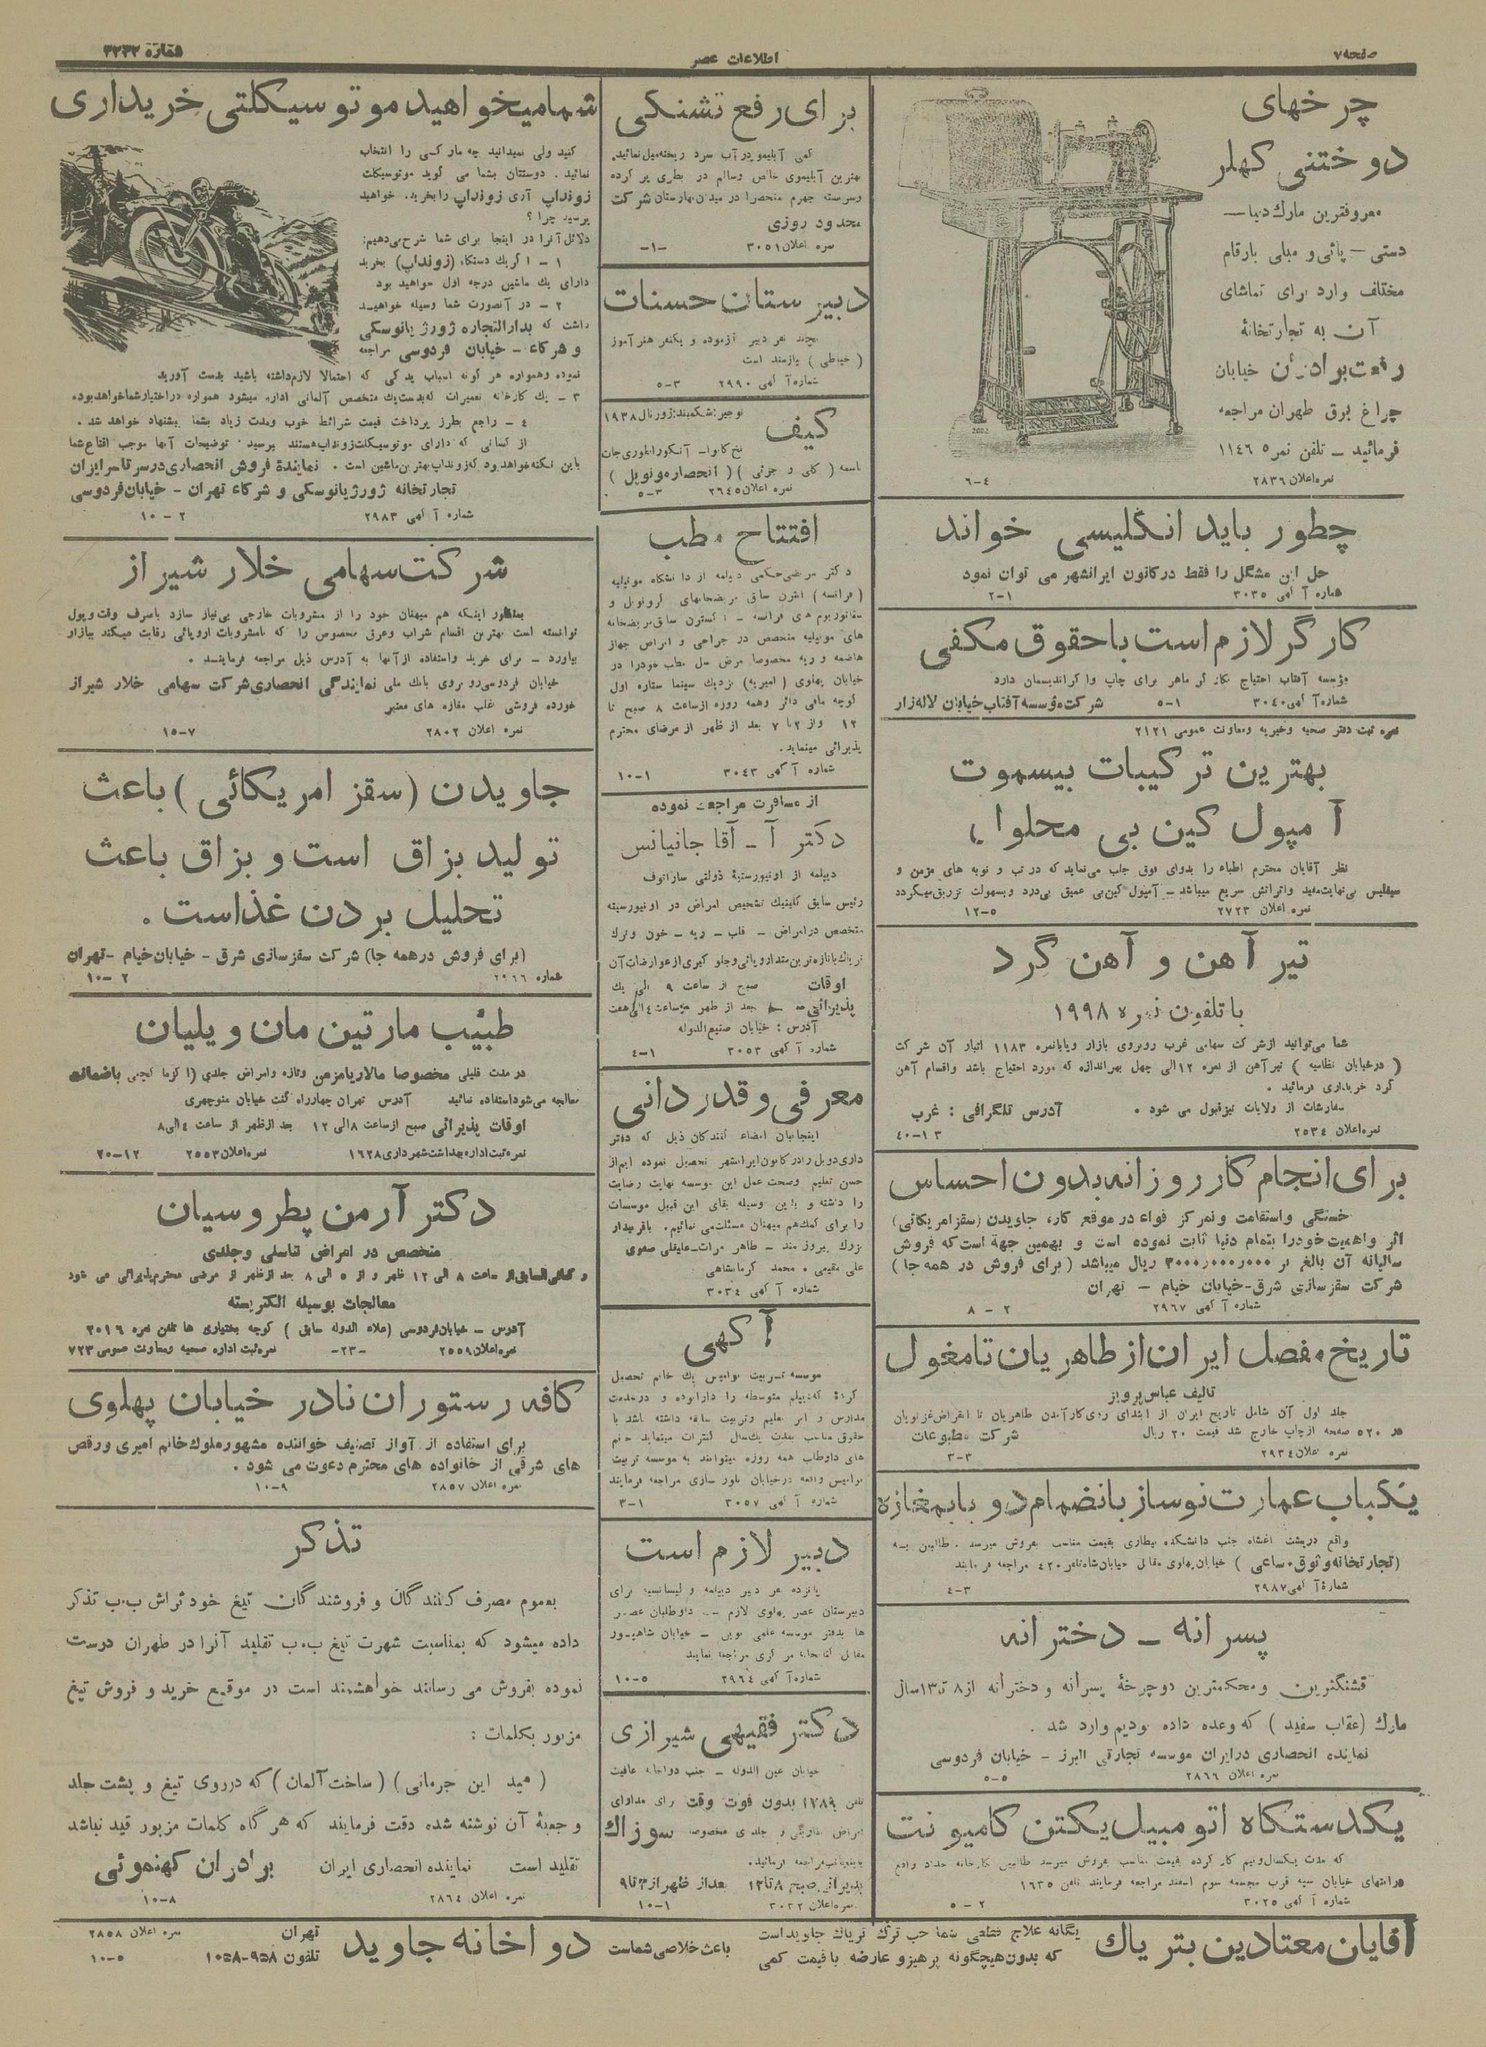 صفحه ۷
اطلاعات عصر
شماره ۳۲۳۲
چرخهای
دوختنی کهلر
معروفترین مارك دنیا—
دستی — پائی و مبلی بارقام
مختلف وارد برای تماشای
آن به تجارتخانهٔ
رفعت برادران خیابان
چراغ برق طهران مراجعه
فرمائید — تلفن نمره ۱۱۴۶۵
نمره اعلان ۲۸۳۶ ۴-۶
چطور باید انگلیسی خواند
حل این مشگل را فقط درکانون ایرانشهر می توان نمود
شماره آ آهی ۳۰۳۵ ۱-۲
کارگر لازم است با حقوق مکفی
شماره آ آهی ۳۰۴۰ ۱-۵ شرکت مؤسسه آفتاب خیابان لاله‌زار
نمره ثبت دفتر صحیه وخیریه ومعاونت عمومی ۲۱۲۱
بهترین ترکیبات بیسموت
آمپول کین بی محلول
نظر آقایان محترم اطباء را بدوای فوق جلب می‌نماید که در تب و نوبه های مزمن و
سیفلیس بی‌نهایت مفید واثراتش سریع میباشد — آمپول کین‌بی عمیق بی‌درد وبسهولت تزریق میگردد
نمره اعلان ۲۷۲۳ ۵-۱۲
تیر آهن و آهن گرد
با تلفون نمره ۱۹۹۸
شما می‌توانید ازشرکت سهامی غرب روبروی بازار ویابانمره ۱۱۸۳ انبار آن شرکت
( درخیابان نظامیه ) تیرآهن از نمره ۱۲ الی چهل بهراندازه که مورد احتیاج باشد واقسام آهن
گرد خریداری فرمائید .
سفارشات از ولایات نیزقبول می شود . آدرس تلگرافی : غرب
نمره اعلان ۲۵۳۴ ۱۳-۴۰
برای انجام کار روزانه بدون احساس
خستگی واستقامت وتمرکز قواء در موقع کار، جاویدن (سقز امریکائی)
اثر واهمیت خودرا بتمام دنیا ثابت نموده است و بهمین جهة است که فروش
سالیانه آن بالغ بر ۳۰۰۰٫۰۰۰٫۰۰۰ ریال میباشد ( برای فروش در همه جا )
شرکت سقزسازی شرق-خیابان خیام — تهران
شماره آ آهی ۲۹۶۷ ۲ - ۸
تاریخ مفصل ایران از طاهریان تا مغول
تالیف عباس پرویز
جلد اول آن شامل تاریخ ایران از ابتدای روی‌کار آمدن طاهریان تا انقراض غزنویان
در ۵۲۰ صفحه ازچاپ خارج شد قیمت ۲۰ ریال شرکت مطبوعات
نمره اعلان ۲۹۳۴ ۳-۳
یکباب عمارت نوساز بانضمام دو باب مغازه
شماره آ آهی ۲۹۸۷ ۳-۴
پسرانه — دخترانه
قشنگترین و محکمترین دوچرخهٔ پسرانه و دخترانه از ۸ تا ۱۳ سال
مارك (عقاب سفید ) که وعده داده بودیم وارد شد .
نماینده انحصاری درایران موسسه تجارتی البرز - خیابان فردوسی
نمره اعلان ۲۸۶۶ ۵-۵
یکدستگاه اتومبیل یکتن کامیونت
که مدت یکسال‌ونیم کار کرده بقیمت مناسب بفروش میرسد
شماره آ آهی ۳۰۲۵ ۲ - ۵
برای رفع تشنگی
کمی آبلیمو در آب سرد ریخته میل نمائید.
بهترین آبلیموی خالص وسالم در بطری پر کرده
وسربسته جهرم منحصرا در میدان بهارستان شرکت
محدود روزی
نمره اعلان ۳۰۵۱ -۱-
دبیرستان حسنات
چند نفر دبیر آزموده و یکنفر هنرآموز
( خیاطی ) نیازمند است
شماره آ آهی ۲۹۹۰ ۳-۵
کیف
( کلی و جزئی ) ( انحصار مونوپل )
نمره اعلان ۲۶۴۵ ۳-۵
افتتاح مطب
دکتر مرتضی حکمی دیپلمه از دانشگاه مونپلیه
( فرانسه ) انترن سابق مریضخانهای گرونوبل و
های مونپلیه متخصص در جراحی و امراض جهاز
هاضمه و ریه مخصوصا مرض سل مطب خودرا در
خیابان پهلوی ( امیریه ) نزدیك سینما ستاره اول
کوچه مافی دائر وهمه روزه ازساعت ۸ صبح تا
۱۲ و از ۲ تا ۷ بعد از ظهر از مرضای محترم
پذیرائی مینماید.
شماره آ آهی ۳۰۴۳ ۱-۱۰
از مسافرت مراجعت نموده
دکتر آ - آقا جانیانس
دیپلمه از اونیورسیتهٔ دولتی ساراتوف
رئیس سابق کلینیك تشخیص امراض در اونیورسیته
متخصص درامراض - قلب - ریه - خون وترك
اوقات صبح از ساعت ۹ الی یك
آدرس : خیابان صنیع‌الدوله
شماره آ آهی ۳۰۵۳ ۱-۴
معرفی و قدردانی
اینجانبان امضاء کنندگان ذیل که دفتر
داری دوبل را در کانون ایرانشهر تحصیل نموده ایم از
حسن تعلیم وصحت عمل این موسسه نهایت رضایت
را داشته و باین وسیله بقای این قبیل موسسات
علی مقیمی . محمد کرمانشاهی
شماره آ آهی ۳۰۳۴
آگهی
موسسه تربیت نوآموز یك خانم تحصیل
شماره آ آهی ۳۰۵۷ ۱-۳
دبیر لازم است
پانزده نفر دبیر دیپلمه و لیسانسیه برای
شماره آ آهی ۲۹۶۴ ۵-۱۰
دکتر فقیهی شیرازی
خیابان عین الدوله - جنب دواخانه عافیت
تلفن ۱۷۸۹ بدون فوت وقت برای مداوای
امراض مقاربتی و جلدی مخصوصا سوزاك
پذیرائی صبح ۸ تا ۱۲ بعد از ظهر از ۳ تا ۹
نمره اعلان ۳۰۳۲ ۱-۱۰
شما میخواهید موتوسیکلتی خریداری
کنید ولی نمیدانید چه مارکی را انتخاب
نمائید . دوستتان بشما می گوید موتوسیکلت
زونداپ آری زونداپ را بخرید. خواهید
پرسید چرا ؟
دلائل آنرا در اینجا برای شما شرح می‌دهیم:
۱ - اگر یك دستگاه (زونداپ) بخرید
دارای یك ماشین درجه اول خواهید بود
۲ - در آنصورت شما وسیله خواهید
داشت که بدارالتجاره ژورژ یانوسکی
و شرکاء - خیابان فردوسی مراجعه
نموده وهمواره هر گونه اسباب یدکی که احتمالا لازم داشته باشید بدست آورید
۳ - یك کارخانه تعمیرات که بدست یك متخصص آلمانی اداره میشود همواره دراختیار شما خواهد بود.
۴ - راجع بطرز پرداخت قیمت شرائط خوب ومدت زیاد بشما پیشنهاد خواهد شد .
از کسانی که دارای موتوسیکلت زونداپ هستند بپرسید: توضیحات آنها موجب اقناع شما
باین نکته خواهد بود که زونداپ بهترین ماشین است . نمایندهٔ فروش انحصاری در سرتاسر ایران
تجارتخانه ژورژ یانوسکی و شرکاء تهران - خیابان فردوسی
شماره آ آهی ۲۹۸۳ ۲ - ۱۰
شرکت سهامی خلار شیراز
بمنظور اینکه هم میهنان خود را از مشروبات خارجی بی‌نیاز سازد باصرف وقت وپول
توانسته است بهترین اقسام شراب وعرق مخصوص را که بامشروبات اروپائی رقابت میکند ببازار
بیاورد - برای خرید واستفاده ازآنها به آدرس ذیل مراجعه فرمایند .
خیابان فردوسی روبروی بانك ملی نمایندگی انحصاری شرکت سهامی خلار شیراز
خورده فروشی اغلب مغازه های معتبر
نمره اعلان ۲۸۰۲ ۷-۱۵
جاویدن (سقز امریکائی ) باعث
تولید بزاق است و بزاق باعث
تحلیل بردن غذاست .
(برای فروش درهمه جا) شرکت سقزسازی شرق - خیابان خیام - تهران
شماره ۲۹۶۶ ۲ - ۱۰
طبیب مارتین مان ویلیان
در مدت قلیلی مخصوصا مالاریا مزمن وتازه وامراض جلدی (اگزما کچلی) باضمانت
معالجه می‌شود استفاده نمائید آدرس تهران چهارراه کنت خیابان منوچهری
اوقات پذیرائی صبح ازساعت ۸ الی ۱۲ بعد ازظهر از ساعت ۴ الی ۸
نمره ثبت اداره بهداشت شهرداری ۱۶۲۸ نمره اعلان ۲۵۵۳ ۱۲-۲۰
دکتر آرمن پطروسیان
متخصص در امراض تناسلی و جلدی
کمافی‌السابق از ساعت ۸ الی ۱۲ ظهر و از ۵ الی ۸ بعد ازظهر از مرضی محترم پذیرائی می شود
معالجات بوسیله الکتریسته
آدرس - خیابان فردوسی (علاء الدوله سابق ) کوچه بختیاری ها تلفن نمره ۲۰۱۶
نمره اعلان ۲۵۵۹ -۲۳- نمره ثبت اداره صحیه و معاونت عمومی ۷۲۳
کافه رستوران نادر خیابان پهلوی
برای استفاده از آواز تصنیف خواننده مشهور ملوك خانم امیری ورقص
های شرقی از خانواده های محترم دعوت می شود .
نمره اعلان ۲۸۵۷ ۹-۱۰
تذکر
بعموم مصرف کنندگان و فروشندگان تیغ خود تراش ب.ب تذکر
داده میشود که بمناسبت شهرت تیغ ب.ب تقلید آنرا در طهران درست
نموده بفروش می رسانند خواهشمند است در موقع خرید و فروش تیغ
مزبور بکلمات :
( مید این جرمانی ) ( ساخت آلمان ) که درروی تیغ و پشت جلد
و جعبهٔ آن نوشته شده دقت فرمایند که هر گاه کلمات مزبور قید نباشد
تقلید است نماینده انحصاری ایران برادران کهنموئی
نمره اعلان ۲۸۶۴ ۸-۱۰
آقایان معتادین بتریاك
یگانه علاج قطعی شما حب ترك تریاك جاوید است
که بدون هیچگونه پرهیز و عارضه با قیمت کمی
باعث خلاصی شماست
دواخانه جاوید
تهران
تلفون ۹۵۸-۱۰۵۸
نمره اعلان ۲۸۵۸
۵-۱۰